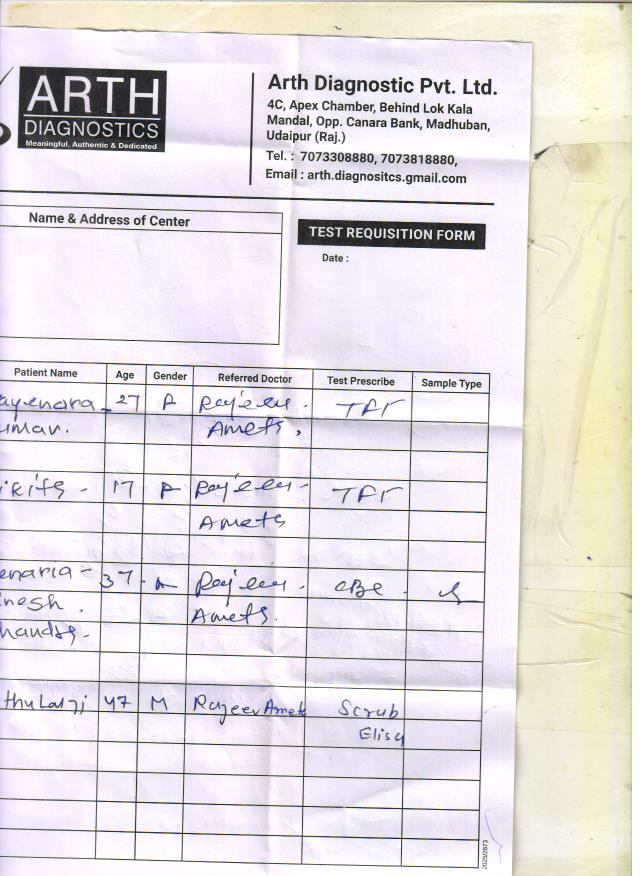 ARTH
DIAGNOSTICS
Meaningful, Authentic & Dedicated
Arth Diagnostic Pvt. Ltd.
4C, Apex Chamber, Behind Lok Kala
Mandal, Opp. Canara Bank, Madhuban,
Udaipur (Raj.)
Tel. : 7073308880, 7073818880,
Email : arth.diagnositcs.gmail.com
Name & Address of Center
TEST REQUISITION FORM
Date :
Patient Name Age Gender Referred Doctor Test Prescribe Sample Type
27 Rajeev. TFT
umar. Amets,
17 Rajeev- TFT
Amets
37 Rajeev. CBC.
inesh. Amets.
thulalji 47 M Rajeev Amet Scrub
Elisa
2025/2873